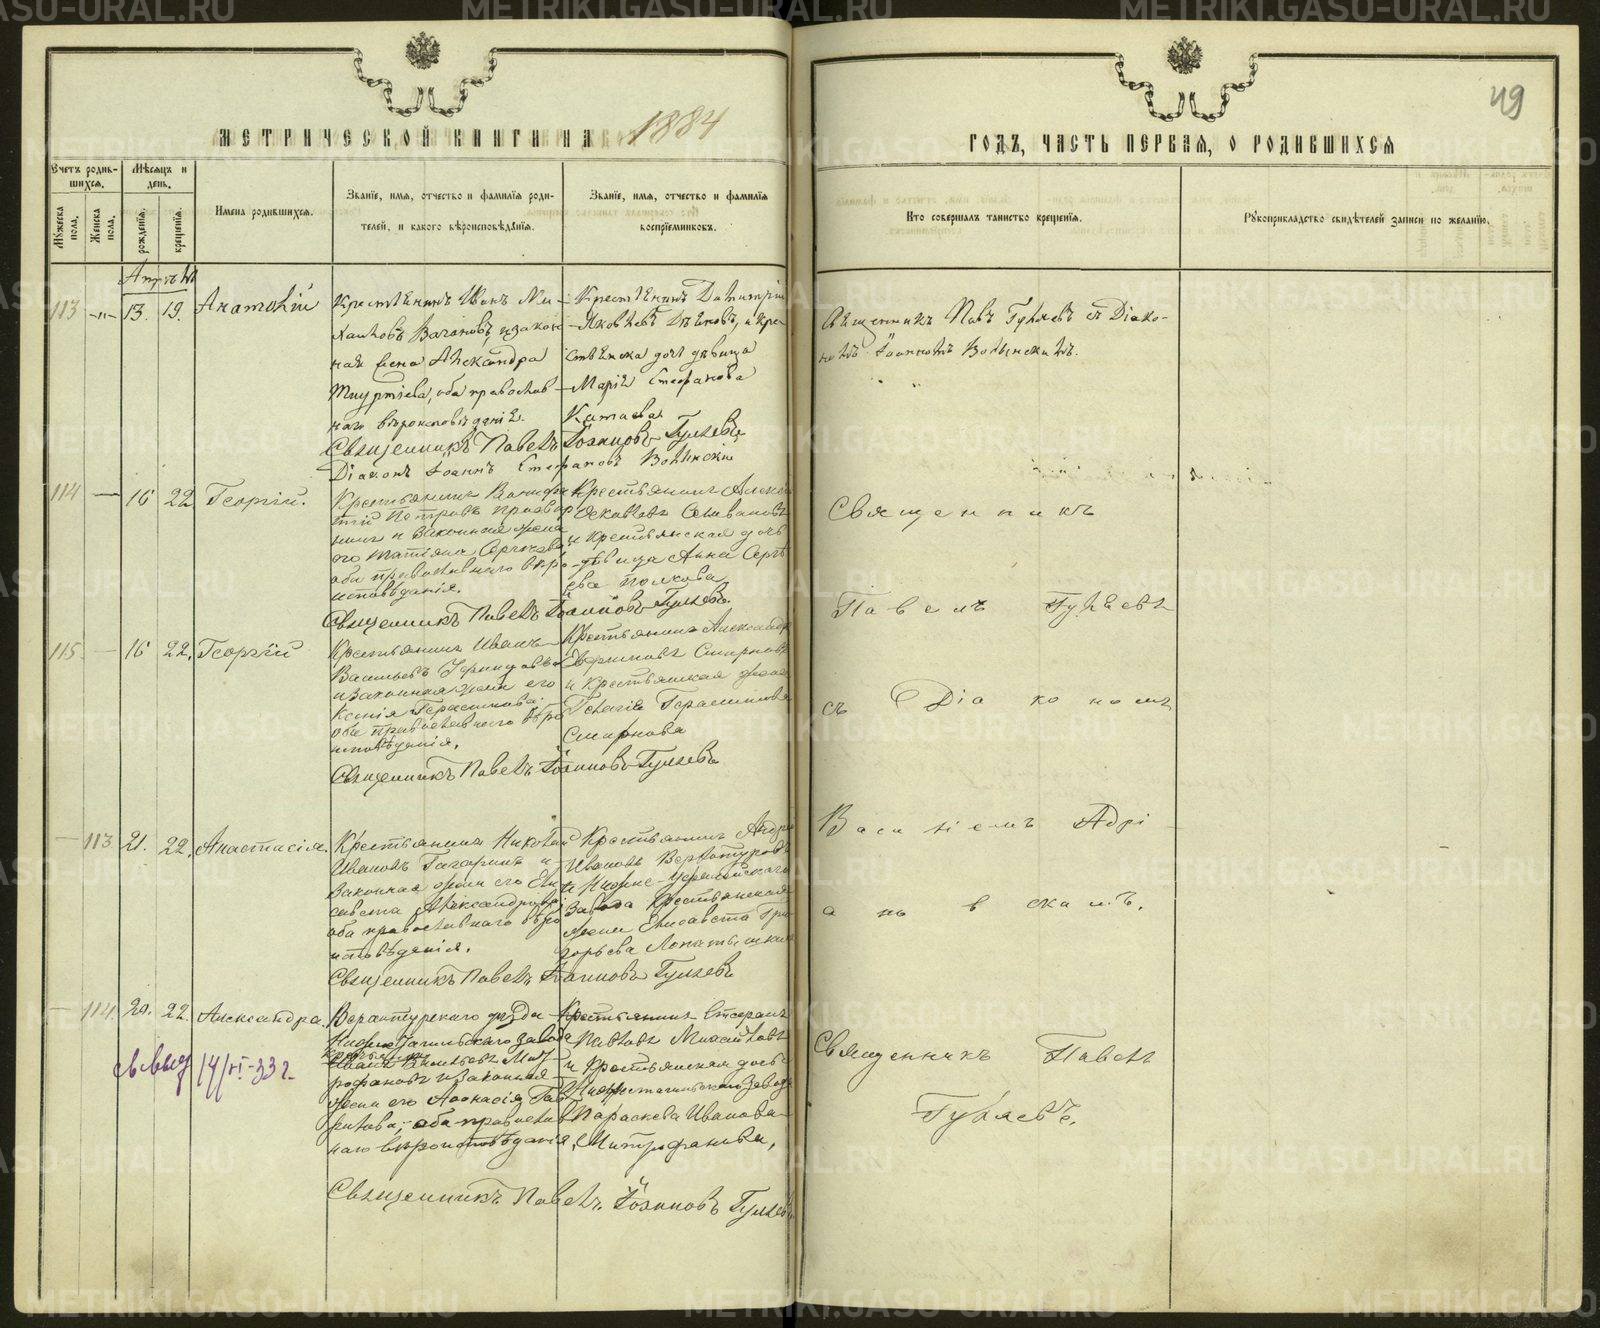 МЕТРИЧЕСКОЙ КНИГИ НА 1884
ГОДЪ, ЧАСТЬ ПЕРВАЯ, О РОДИВШИХСЯ
49
Счетъ родив-
шихся.
Мѣсяцъ и
день.
Мужеска пола.
Женска пола.
рожденія.
крещенія.
Имена родившихся.
Званіе, имя, отчество и фамилія роди-
телей, и какого вѣроисповѣданія.
Званіе, имя, отчество и фамилія
воспріемниковъ.
Кто совершалъ таинство крещенія.
Рукоприкладство свидѣтелей записи по желанію.
Апрѣль
113 -"- 13. 19. Анатолій
Крестьянинъ Иванъ Ми-
хайловъ Вагановъ, и закон-
ная жена Александра
оба православ-
наго вѣроисповѣданія.
Крестьянинъ Димитрій
Яковлевъ и кре-
стьянская дочь девица
Марія Стефанова
Катаева
Священникъ Павелъ Іоанновъ Гуляевъ
Діаконъ Іоаннъ Стефановъ Волынскій
Священникъ Павелъ Гуляевъ съ Діако-
номъ Іоанномъ Волынскимъ.
114 — 16 22 Георгій.
Крестьянинъ
Петровъ
и законная жена
его Татіана
оба православнаго вѣро-
исповѣданія.
Крестьянинъ Алексѣй
Селивановъ
и крестьянская дочь
дѣвица Анна Сергѣ
ева Полкова
Священникъ Павелъ Іоанновъ Гуляевъ
115 — 16 22. Георгій
Крестьянинъ Иванъ
Васильевъ
и законная жена его
Ксенія Герасимова.
оба православнаго вѣро
исповѣданія.
Крестьянинъ Александръ
Ефимовъ Смирновъ
и крестьянская жена
Пелагія Герасимова
Смирнова
Священникъ Павелъ Іоанновъ Гуляевъ
Священникъ
Павелъ Гуляевъ
съ Діакономъ
Василіемъ Адрі
ановскимъ.
— 113 21. 22. Анастасія.
Крестьянинъ Николай
Ивановъ Гагаринъ и
законная жена его Ели
савета Александрова
оба православнаго вѣро
исповѣданія.
Крестьянинъ Андрей
Ивановъ
и Нижне
завода крестьянская
жена Елисавета Гри
горьева
Священникъ Павелъ Іоанновъ Гуляевъ
— 114. 20. 22. Александра.
Верхотурскаго уѣзда
Нижнетагильскаго завода
крестьянинъ
Иванъ Васильевъ Мит-
рофановъ и законная
жена его Аѳанасія Гав
рилова, оба православ
наго вѣроисповѣданія,
Крестьянинъ Стефанъ
Павловъ Михайловъ
и крестьянская дочь
Нижнетагильскаго завода
Параскева Иванова
Митрофанова,
Священникъ Павелъ Іоанновъ Гуляевъ
Священникъ Павелъ
Гуляевъ.
14/VI-33 г.
METRIKI.GASO-URAL.RU